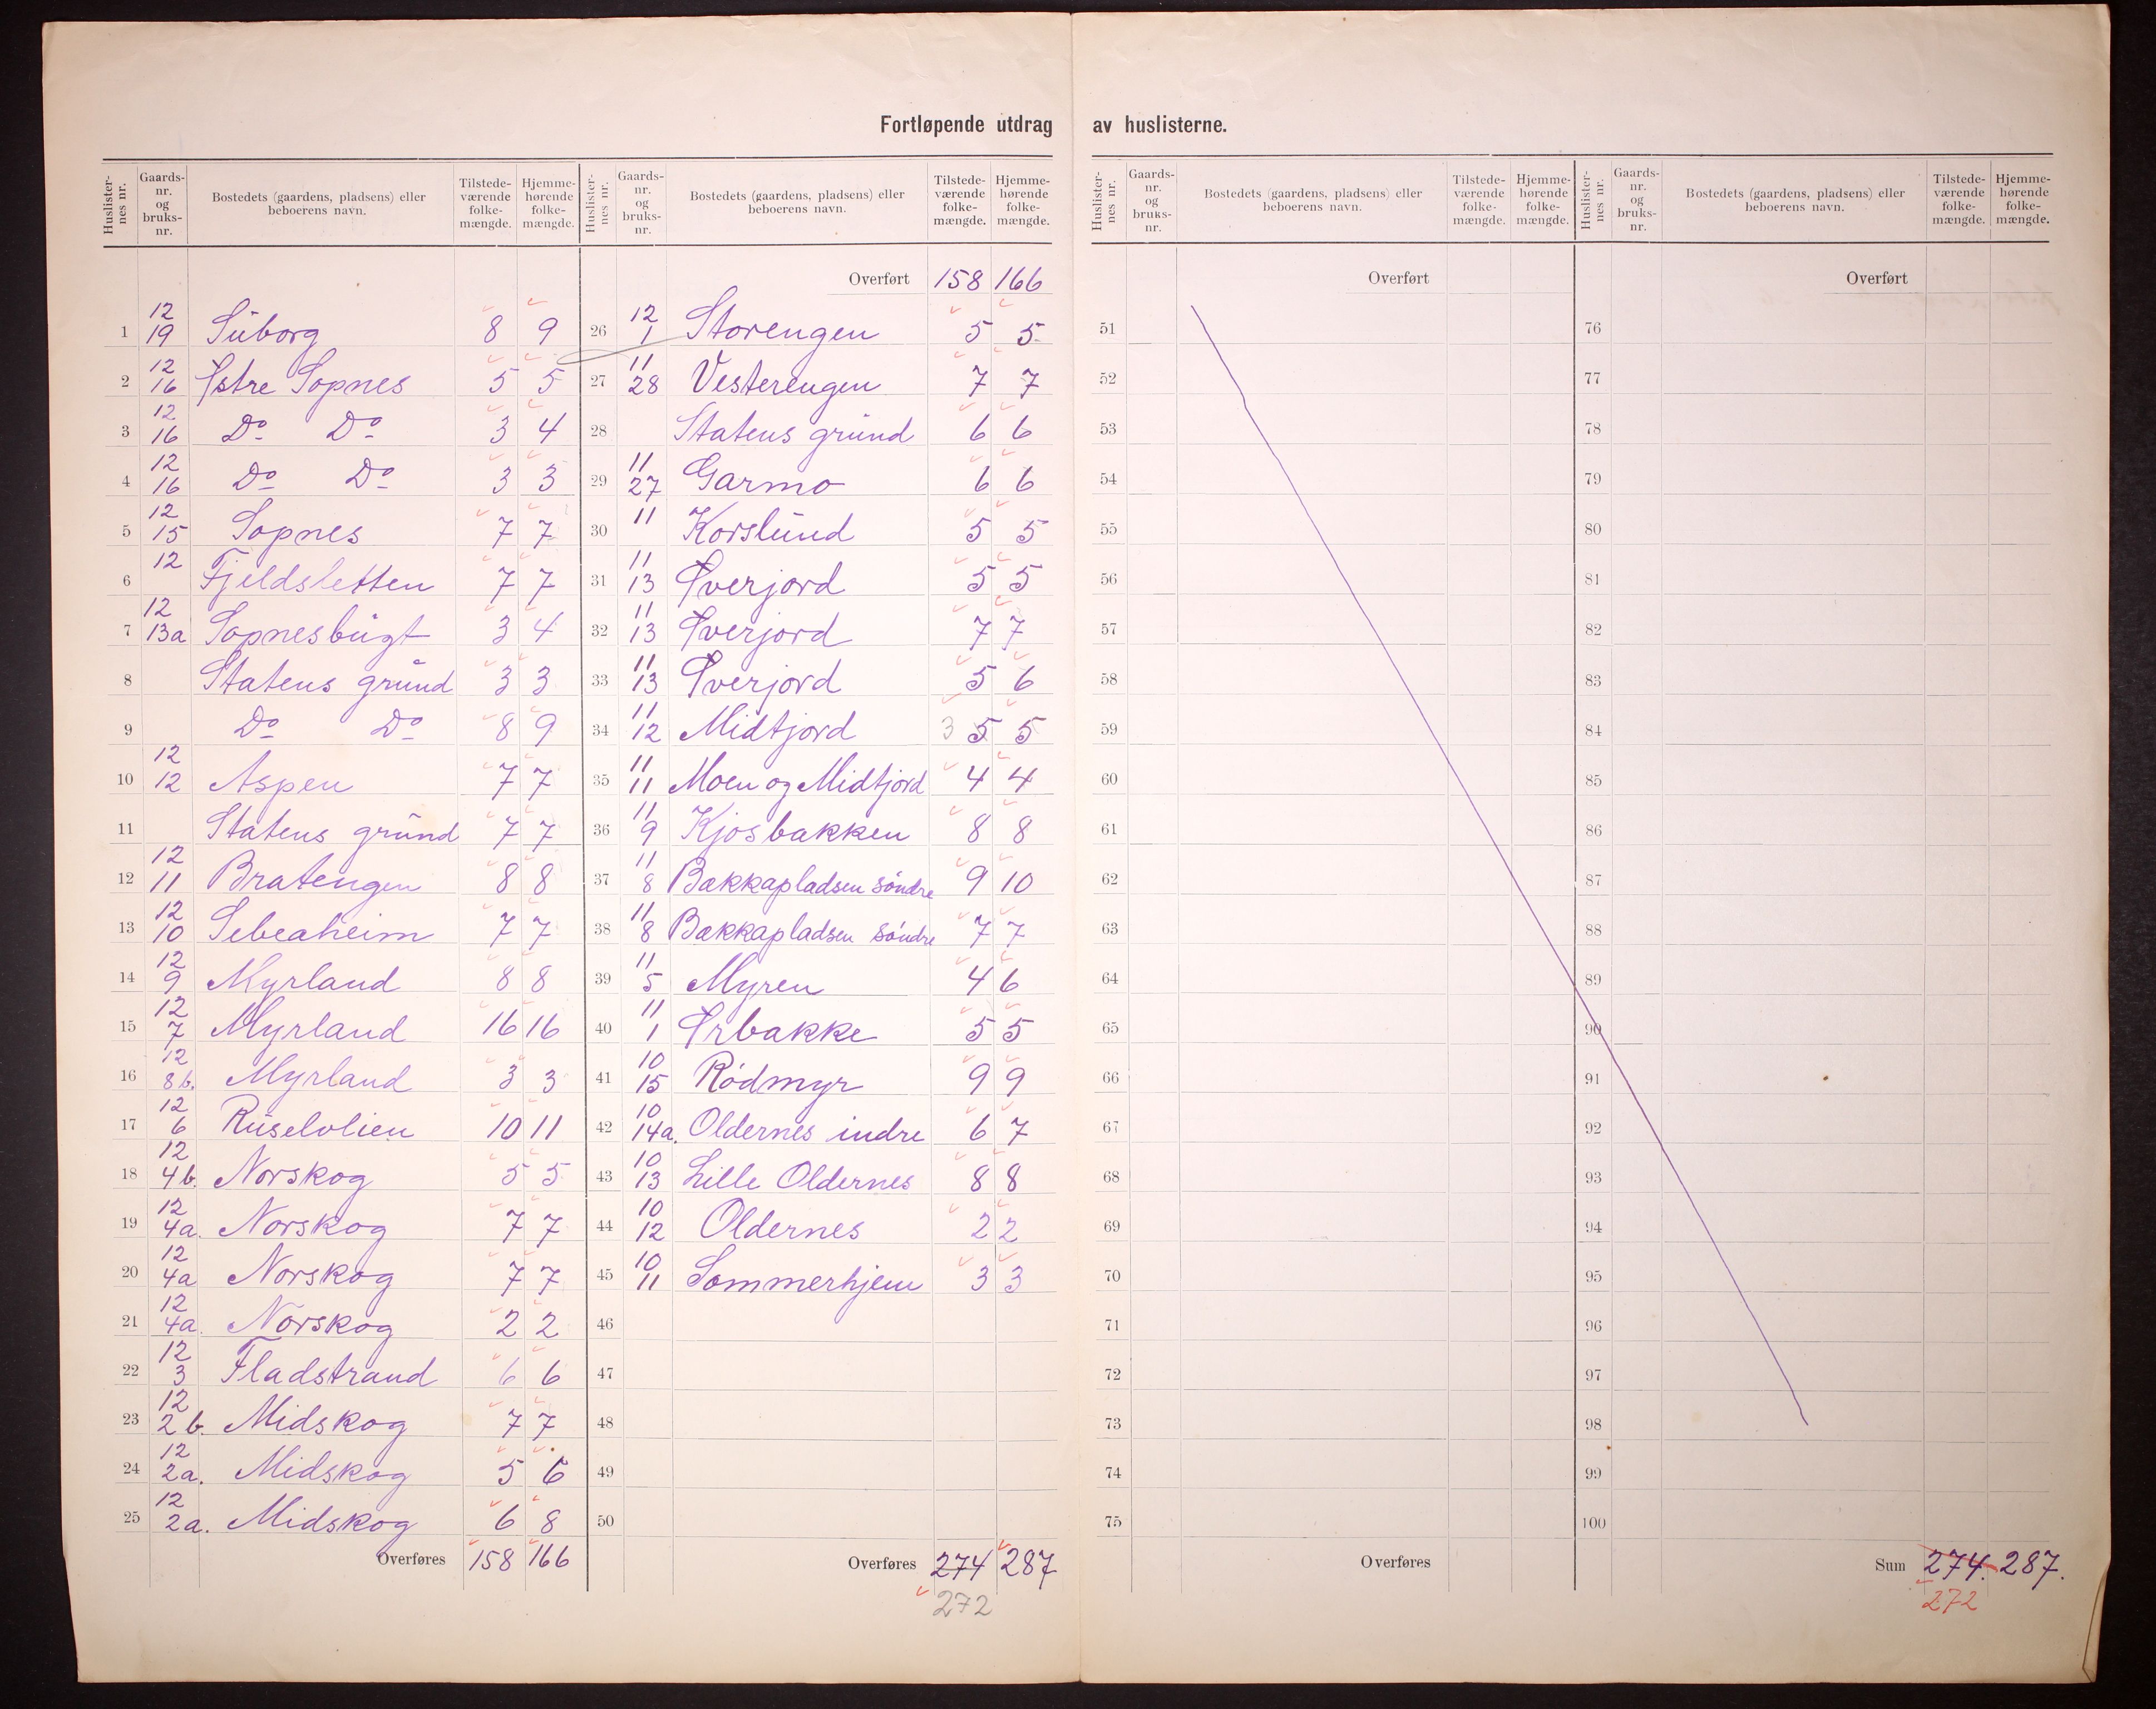 Fortløpende utdrag av huslisterne.
Huslister-nes nr. Gaards-nr. og bruks-nr. Bostedets (gaardens, pladsens) eller beboerens navn. Tilstede-værende folke-mængde. Hjemme-hørende folke-mængde.
1 12 19 Suborg 8 9
2 12 16 Ystre Sopnes 5 5
3 12 16 Do Do 3 4
4 12 16 Do Do 3 3
5 12 15 Sopnes 7 7
6 12 Fjeldsletten 7 7
7 12 13a Sopnesbugt 3 4
8 Statens grund 3 3
9 Do Do 8 9
10 12 12 Aspen 7 7
11 Statens grund 7 7
12 12 11 Bratengen 8 8
13 12 10 Sebeaheim 7 7
14 12 9 Myrland 8 8
15 12 7 Myrland 16 16
16 12 8b. Myrland 3 3
17 12 6 Ruselvlien 10 11
18 12 4b. Norskog 5 5
19 12 4a. Norskog 7 7
20 12 4a Norskog 7 7
21 12 4a. Norskog 2 2
22 12 3 Fladstrand 6 6
23 12 2b. Midskog 7 7
24 12 2a. Midskog 5 6
25 12 2a. Midskog 6 8
Overføres 158 166
Huslister-nes nr. Gaards-nr. og bruks-nr. Bostedets (gaardens, pladsens) eller beboerens navn. Tilstede-værende folke-mængde. Hjemme-hørende folke-mængde.
Overført 158 166
26 12 1 Storengen 5 5
27 11 28 Vesterengen 7 7
28 Statens grund 6 6
29 11 27 Garmo 6 6
30 11 Korslund 5 5
31 11 13 Øverjord 5 5
32 11 13 Øverjord 7 7
33 11 13 Øverjord 5 6
34 11 12 Midtjord 3 5 5
35 11 11 Moen og Midtjord 4 4
36 11 9 Kjosbakken 8 8
37 11 8 Bakkapladsen söndre 9 10
38 11 8 Bakkapladsen söndre 7 7
39 11 5 Myren 4 6
40 11 1 Ørbakke 5 5
41 10 15 Rödmyr 9 9
42 10 14a. Oldernes indre 6 7
43 10 13 Lille Oldernes 8 8
44 10 12 Oldernes 2 2
45 10 11 Sommerhjem 3 3
46
47
48
49
50
Overføres 274 287
272
Huslister-nes nr. Gaards-nr. og bruks-nr. Bostedets (gaardens, pladsens) eller beboerens navn. Tilstede-værende folke-mængde. Hjemme-hørende folke-mængde.
Overført
51
52
53
54
55
56
57
58
59
60
61
62
63
64
65
66
67
68
69
70
71
72
73
74
75
Overføres
Huslister-nes nr. Gaards-nr. og bruks-nr. Bostedets (gaardens, pladsens) eller beboerens navn. Tilstede-værende folke-mængde. Hjemme-hørende folke-mængde.
Overført
76
77
78
79
80
81
82
83
84
85
86
87
88
89
90
91
92
93
94
95
96
97
98
99
100
Sum 274. 287.
272